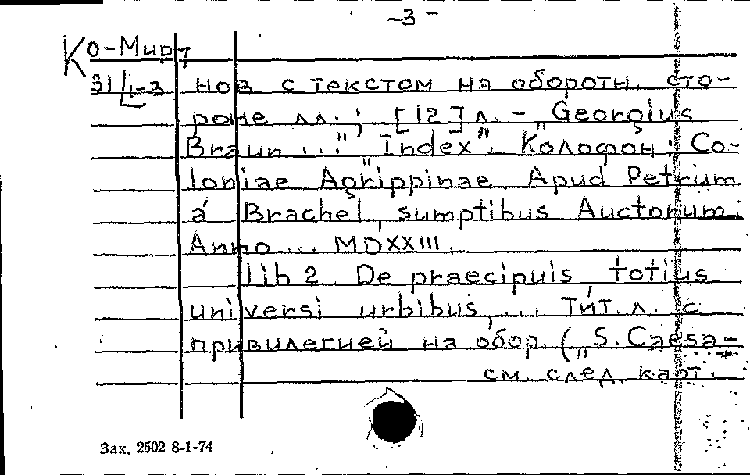 -3-
Ко-Мир 7
31/L-3 нов с текстом на оборотн. сто-
роне лл.; [12] л. - „Georgius
Braun ..." „Index". Колофон: Co-
loniae Agrippinae Apud Petrum
á Brachel, sumptibus Auctorum.
Anno ... MDXXIII.
lib 2 De praecipuis, totius
universi urbibus, ... Тит. л. с
привилегией на обор („S. Caesa-
см. след. карт.
Зак. 2502 8-1-74